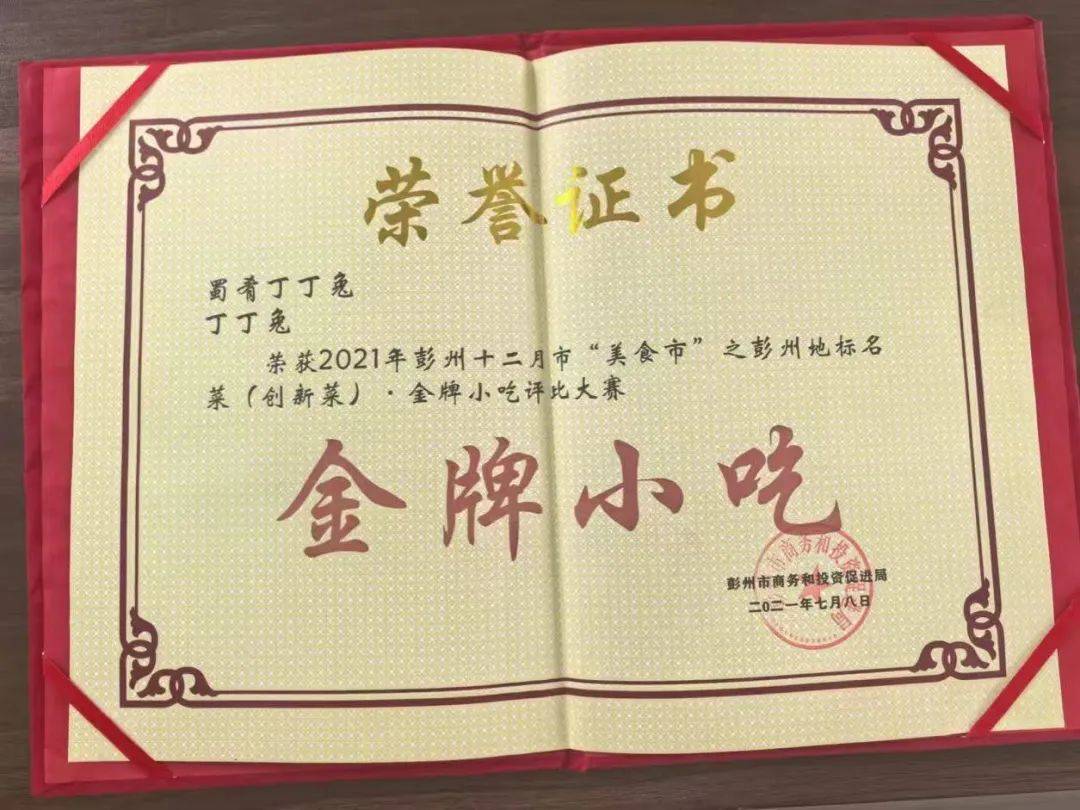 荣誉证书
蜀肴丁丁兔
丁丁兔
荣获2021年彭州十二月市“美食市”之彭州地标名
菜（创新菜）·金牌小吃评比大赛
金牌小吃
市商务和投资促进局
彭州市商务和投资促进局
二〇二一年七月八日